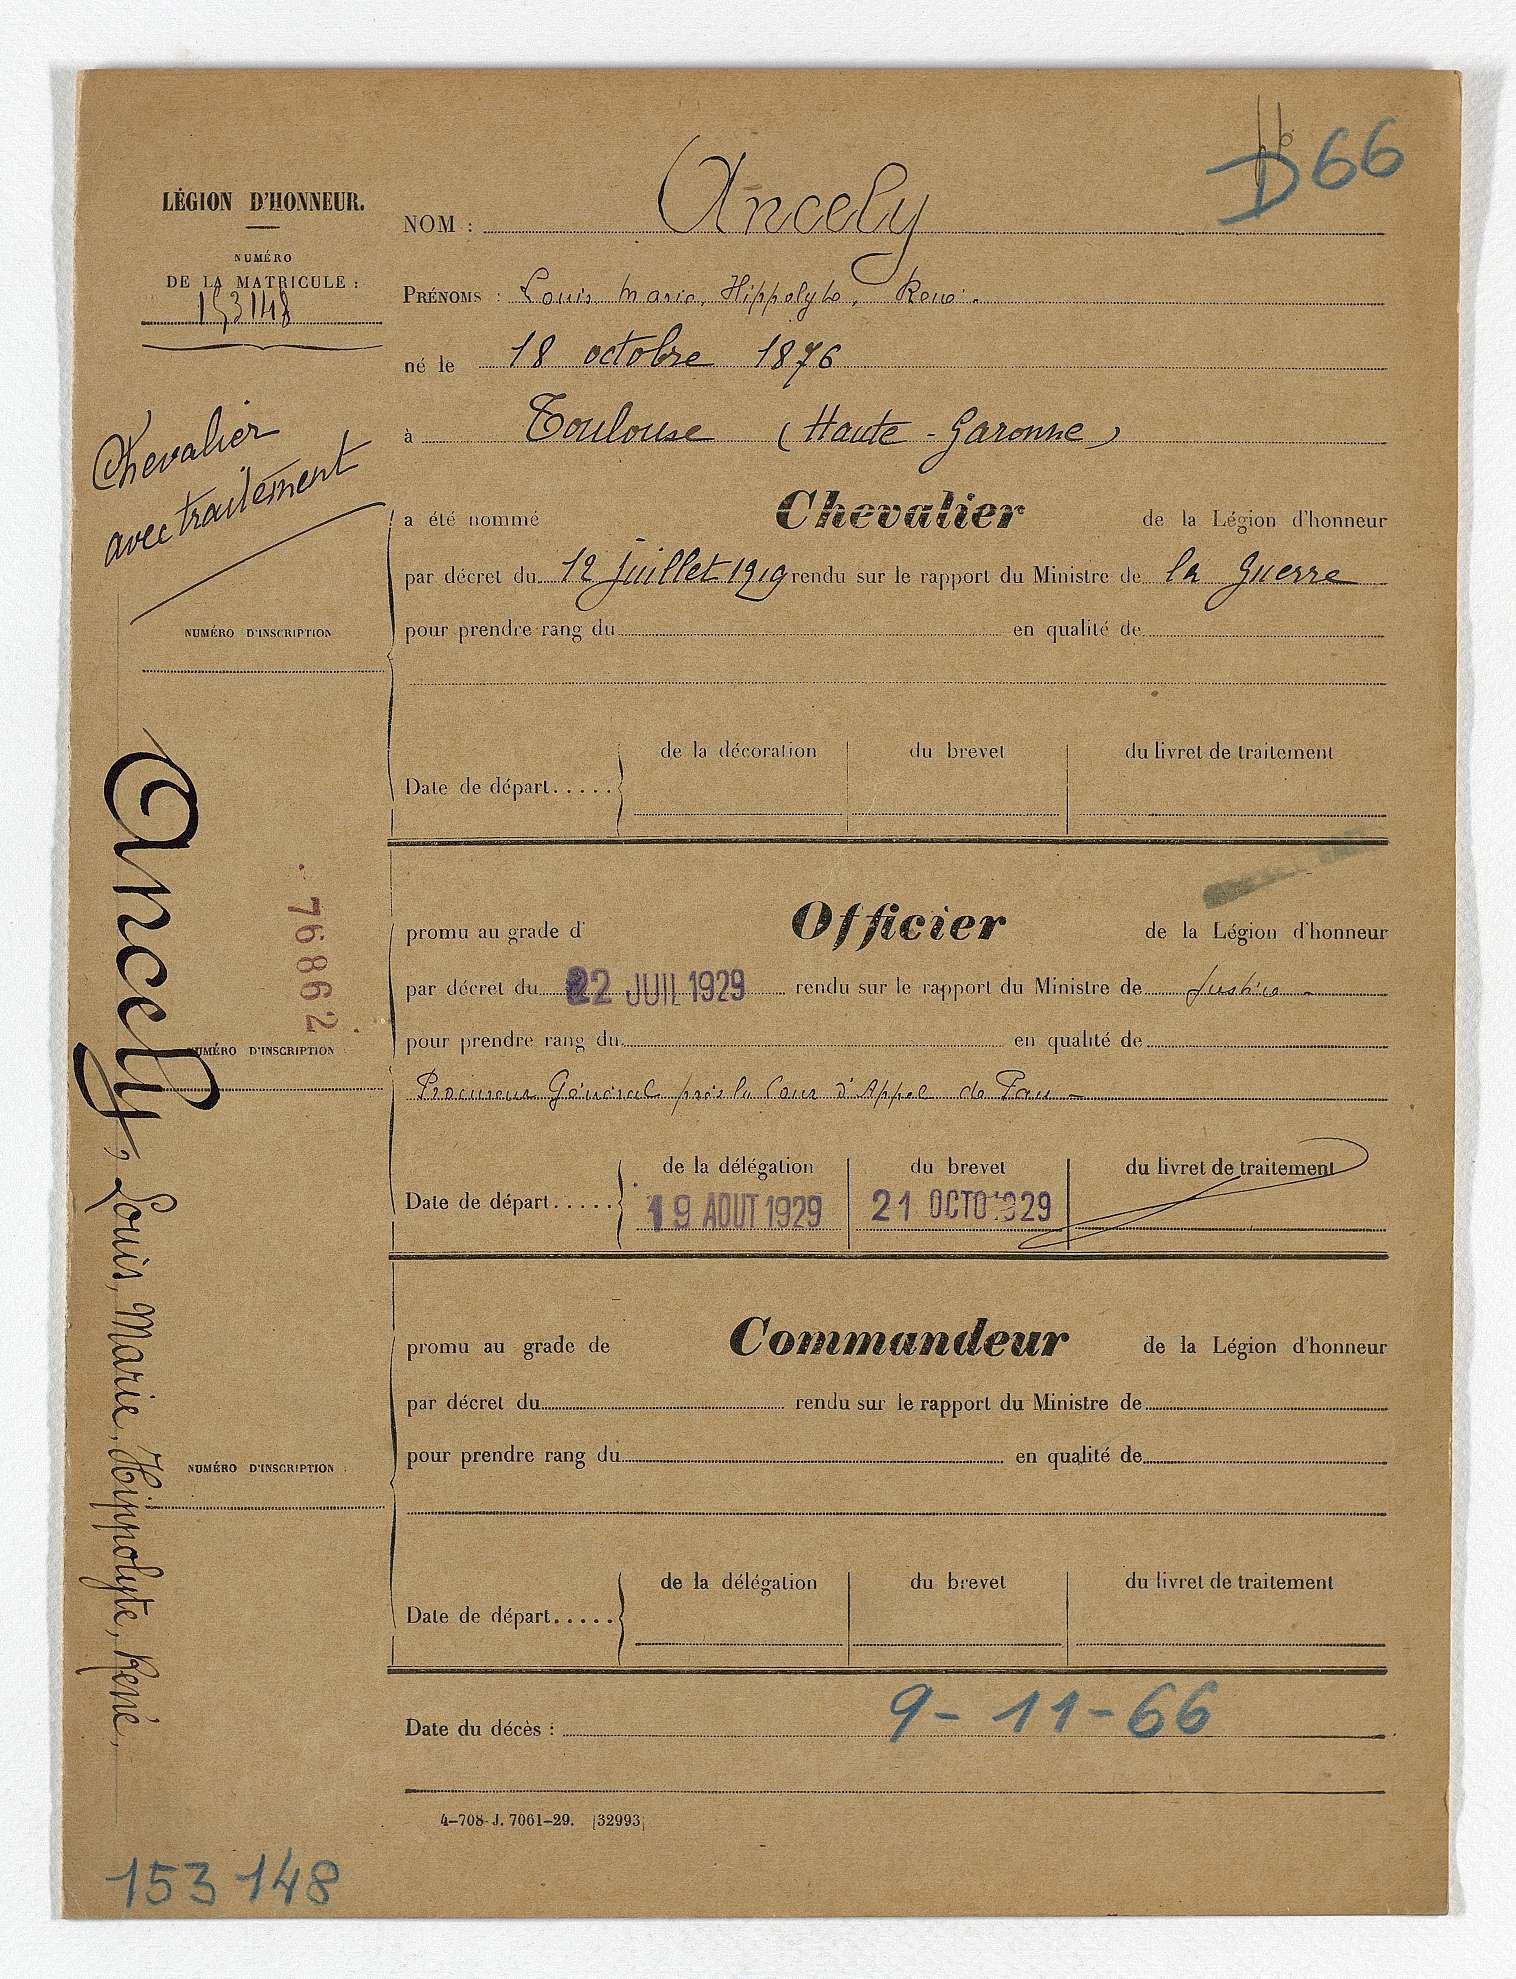 D 66
LÉGION D'HONNEUR.
NUMÉRO
DE LA MATRICULE :
153148
NOM : Ancely
PRÉNOMS : Louis Marie, Hippolyte, René.
né le 18 octobre 1876
à Toulouse (Haute-Garonne)
Chevalier
avec traitement
a été nommé Chevalier de la Légion d'honneur
par décret du 12 juillet 1919 rendu sur le rapport du Ministre de la Guerre
pour prendre rang du en qualité de
NUMÉRO D'INSCRIPTION
de la décoration du brevet du livret de traitement
Date de départ.....
promu au grade d' Officier de la Légion d'honneur
par décret du 22 JUIL 1929 rendu sur le rapport du Ministre de Justice
pour prendre rang du en qualité de
76862
NUMÉRO D'INSCRIPTION
Procureur Général près la Cour d'Appel de Pau
de la délégation du brevet du livret de traitement
Date de départ..... 19 AOUT 1929 21 OCTO 1929
promu au grade de Commandeur de la Légion d'honneur
par décret du rendu sur le rapport du Ministre de
pour prendre rang du en qualité de
NUMÉRO D'INSCRIPTION
de la délégation du brevet du livret de traitement
Date de départ.....
Date du décès : 9-11-66
4-708-J. 7061-29. [32993]
Ancely, Louis, Marie, Hippolyte, René,
153148